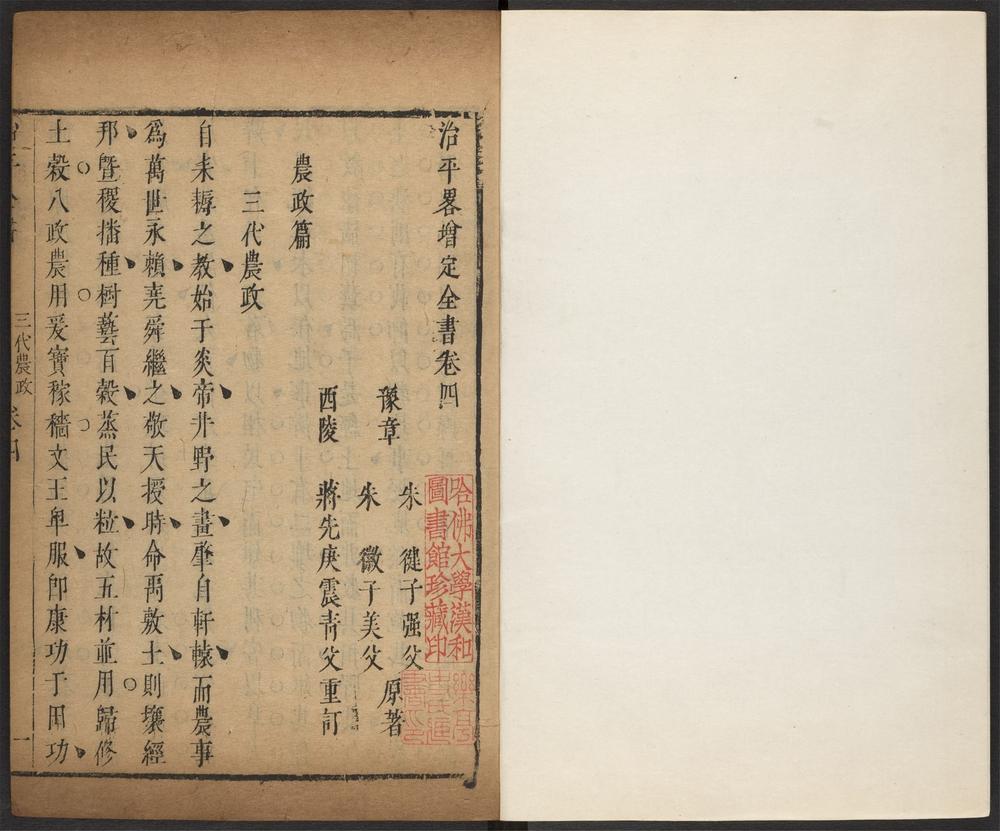 治平畧增定全書卷四
豫章
朱 健子强父
朱 徽子美父
原著
西陵 蔣先庚震青父重訂
農政篇
三代農政
自耒耨之教始于炎帝井野之畫肇自軒轅而農事
爲萬世永賴堯舜繼之敬天授時命禹敷土則壤經
邦暨稷播種樹藝百穀蒸民以粒故五材並用歸修
土穀八政農用爰寶稼穡文王卑服卽康功于田功
三代農政 卷四
一
哈佛大學漢和
圖書館珍藏印